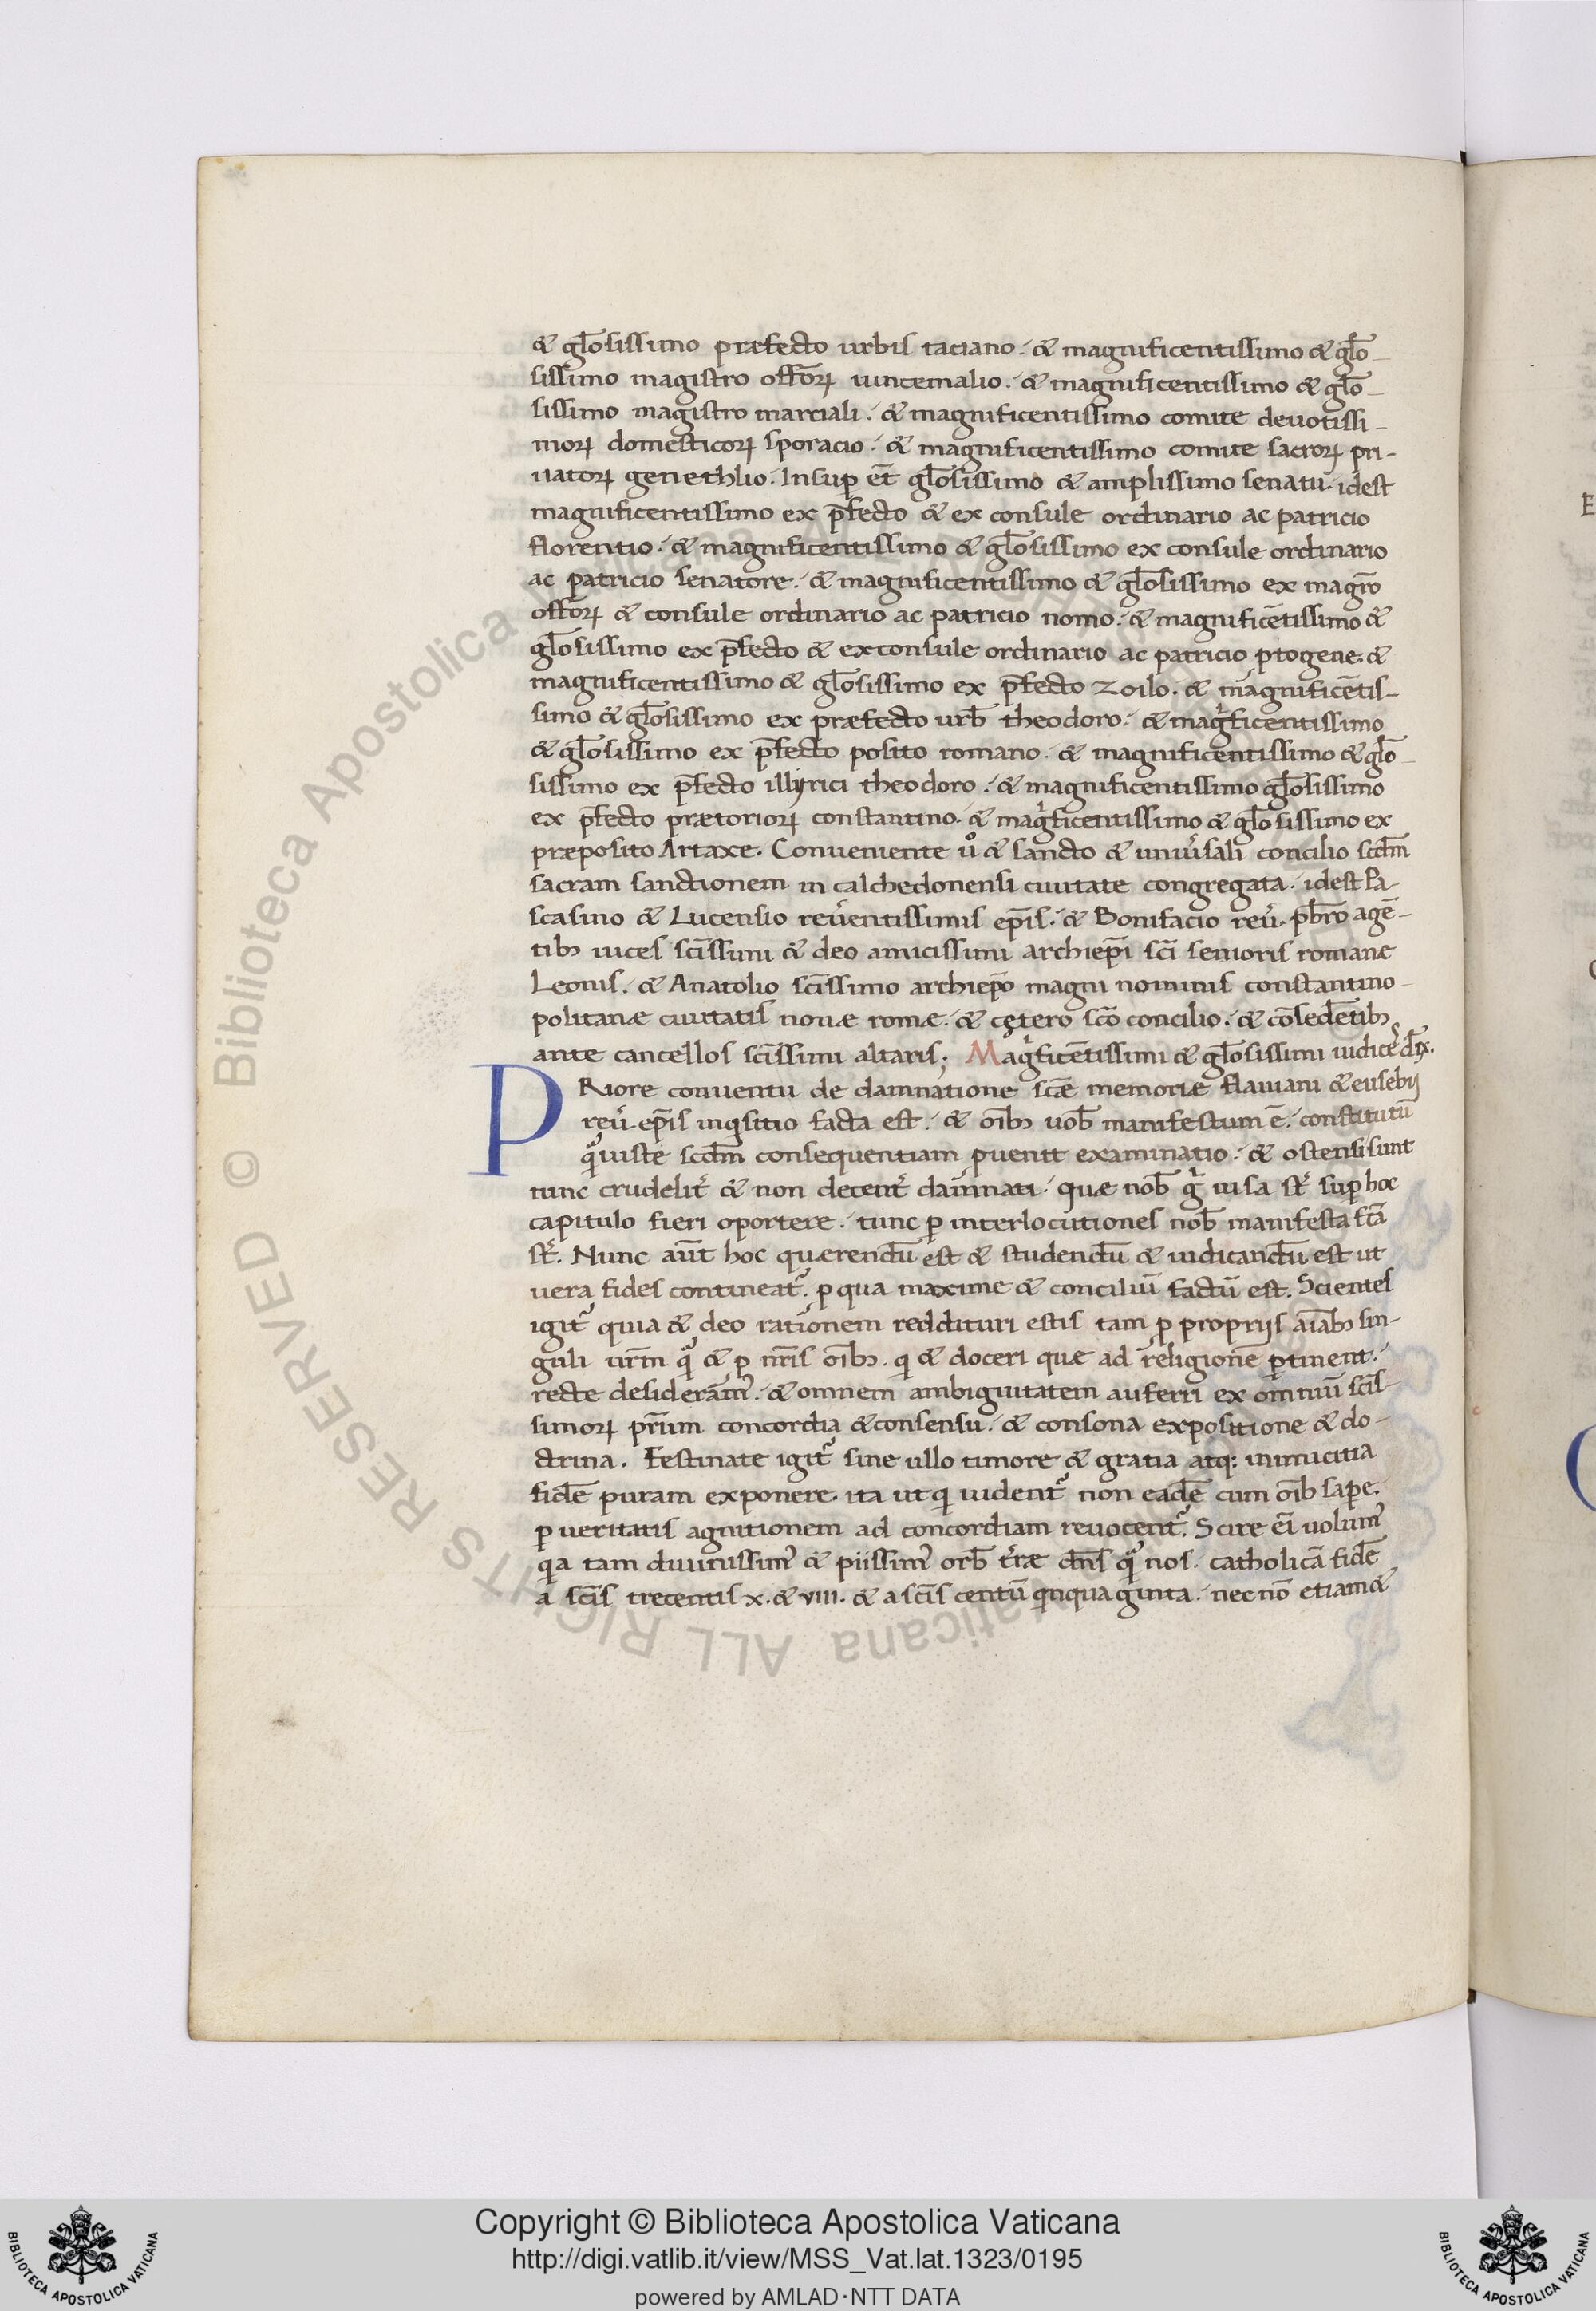 & gl̅osissimo præfecto urbis taciano. & magnificentissimo & gl̅o-
sissimo magistro offi̅coꝝ uincemalio. & magnificentissimo & gl̅o-
sissimo magistro marciali. & magnificentissimo comite deuotissi-
moꝝ domesticoꝝ sporacio. & magnificentissimo comite sacroꝝ pri-
uatoꝝ genethlio. Insuꝑ et̅ gl̅osissimo & amplissimo senatu. idest
magnificentissimo ex p̅fecto & ex consule ordinario ac patricio
florentio. & magnificentissimo & gl̅osissimo ex consule ordinario
ac patricio senatore. & magnificentissimo & gl̅osissimo ex magr̅o
offi̅coꝝ & consule ordinario ac patricio nomo. & magnifice̅tissimo &
gl̅osissimo ex p̅fecto & exconsule ordinario ac patricio ꝓtogene. &
magnificentissimo & gl̅osissimo ex p̅fecto zoilo. & magnifice̅tis-
simo & gl̅osissimo ex præfecto urb̅ theodoro. & mag̍ficentissimo
& gl̅osissimo ex p̅fecto posito romano. & magnificentissimo & gl̅o-
sissimo ex p̅fecto illyrici theodoro. & magnificentissimo gl̅osissimo
ex p̅fecto prætorioꝝ constantino. & mag̍ficentissimo & gl̅osissimo ex
præposito Artaxe. Conueniente uͦ & sancto & uniu̓sali concilio scd̅m
sacram sanctionem in calchedonensi ciuitate congregata. idest Pa-
scasino & Lucensio reu̓entissimis ep̅is. & Bonifacio reu̓. pb̅ro age̅-
tibꝫ uices sc̅issimi & deo amicissimi archiep̅i sc̅i senioris romanæ
Leonis. & Anatolio sc̅issimo archiep̅o magni nominis constantino-
politanæ ciuitatis nouæ romæ. & cętero sc̅o concilio. & co̅sede̅tibꝫ
ante cancellos sc̅issimi altaris; Mag̍fice̅tissimi & gl̅osissimi iudices dix̅.
PRiore conuentu de damnatione sc̅æ memoriæ flauiani & eusebij
reu̓. ep̅is inqsitio facta est. & oi̅bꝫ uob̅ manifestum e̅. constitutu̅
q̅ iuste scd̅m consequentiam ꝓuenit examinatio. & ostensi sunt
tunc crudelit̓ & non decent̓ damnati. quæ nob̅ g̍ uisa st̓ suꝑ hoc
capitulo fieri oportere. tunc ꝑ interlocutiones nob̅ manifesta fc̅a
st̓. Nunc au̅t hoc quærendu̅ est & studendu̅ & iudicandu̅ est ut
uera fides contineat᷑. ꝑ qua maxime & conciliu̅ factu̅ est. Scientes
igit᷑ quia & deo rationem reddituri estis tam ꝑ proprijs ai̅abꝫ sin-
guli ur̅m q̅ & ꝑ nr̅is oi̅bꝫ. q & doceri quæ ad religione̅ ꝑtinent.
recte desideram᷒. & omnem ambiguitatem auferri ex omniu̅ sc̅is-
simoꝝ pr̅um concordia & consensu. & consona expositione & do-
ctrina. Festinate igit᷑ sine ullo timore & gratia atq; inimicitia
fide̅ puram exponere. ita ut q uident᷑ non eade̅ cum oi̅b sape.
ꝑ ueritatis agnitionem ad concordiam reuocent᷑. Scire ei̅ uolum᷒
qa tam diuinissim᷒ & piissim᷒ orb̅ t̓ræ dn̅s q̅ nos. catholica̅ fide̅
a sc̅is trecentis x. & VIII. & a sc̅is centu̅ qnquaginta. nec no̅ etiam &
Copyright © Biblioteca Apostolica Vaticana
http://digi.vatlib.it/view/MSS_Vat.lat.1323/0195
powered by AMLAD·NTT DATA